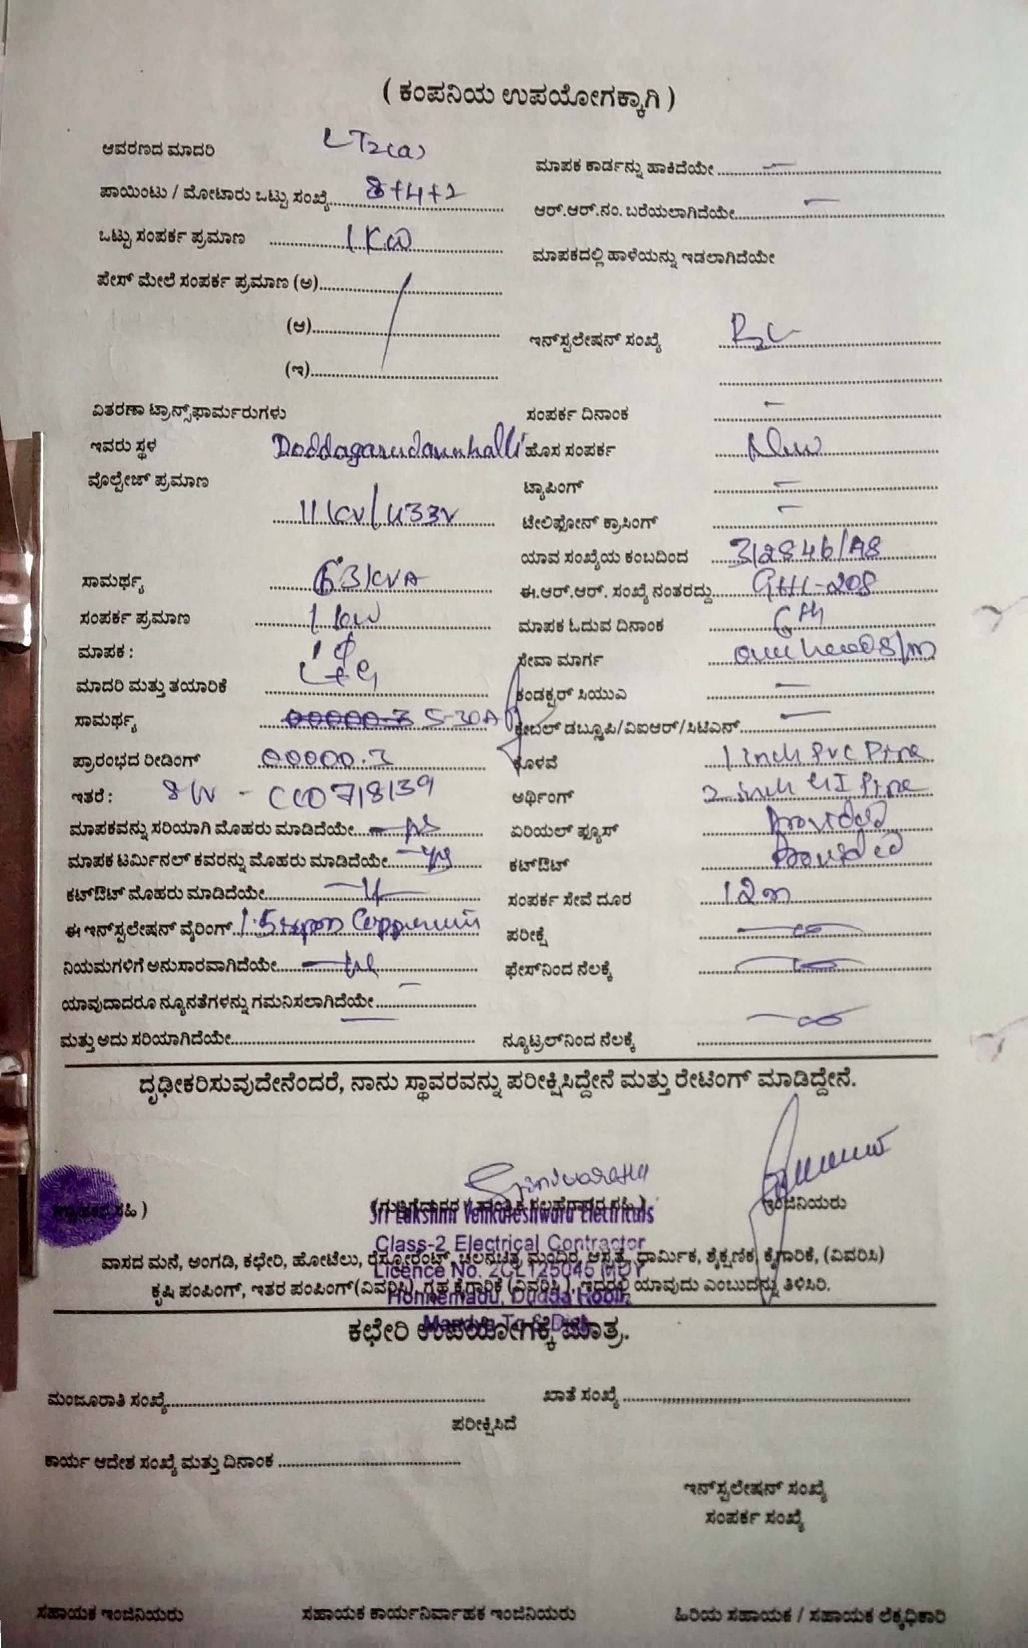 ( ಕಂಪನಿಯ ಉಪಯೋಗಕ್ಕಾಗಿ )
ಆವರಣದ ಮಾದರಿ LT2(a) ಮಾಪಕ ಕಾರ್ಡನ್ನು ಹಾಕಿದೆಯೇ —
ಪಾಯಿಂಟು / ಮೋಟಾರು ಒಟ್ಟು ಸಂಖ್ಯೆ 8+4+2 ಆರ್.ಆರ್.ನಂ. ಬರೆಯಲಾಗಿದೆಯೇ —
ಒಟ್ಟು ಸಂಪರ್ಕ ಪ್ರಮಾಣ 1 KW ಮಾಪಕದಲ್ಲಿ ಹಾಳೆಯನ್ನು ಇಡಲಾಗಿದೆಯೇ
ಪೇಸ್ ಮೇಲೆ ಸಂಪರ್ಕ ಪ್ರಮಾಣ (ಅ)
(ಆ) ಇನ್‌ಸ್ಟಲೇಷನ್ ಸಂಖ್ಯೆ
(ಇ)
ವಿತರಣಾ ಟ್ರಾನ್ಸ್‌ಫಾರ್ಮರುಗಳು ಸಂಪರ್ಕ ದಿನಾಂಕ —
ಇವರು ಸ್ಥಳ Doddagarudannhalli ಹೊಸ ಸಂಪರ್ಕ New
ವೊಲ್ಟೇಜ್ ಪ್ರಮಾಣ 11KV/433V ಟ್ಯಾಪಿಂಗ್ —
ಟೇಲಿಫೋನ್ ಕ್ರಾಸಿಂಗ್ —
ಯಾವ ಸಂಖ್ಯೆಯ ಕಂಬದಿಂದ 312846/A8
ಸಾಮರ್ಥ್ಯ 63KVA ಈ.ಆರ್.ಆರ್. ಸಂಖ್ಯೆ ನಂತರದ್ದು GHL-208
ಸಂಪರ್ಕ ಪ್ರಮಾಣ 1 KW ಮಾಪಕ ಓದುವ ದಿನಾಂಕ
ಮಾಪಕ : 1φ ಸೇವಾ ಮಾರ್ಗ
ಮಾದರಿ ಮತ್ತು ತಯಾರಿಕೆ ಕಂಡಕ್ಟರ್ ಸಿಯುವಿ —
ಸಾಮರ್ಥ್ಯ 5-30A ಕೇಬಲ್ ಡಬ್ಲೂಪಿ/ವಿಐಆರ್/ಸಿಟಿಎನ್ —
ಪ್ರಾರಂಭದ ರೀಡಿಂಗ್ 00000.3 ಕೊಳವೆ 1 inch PVC Pipe
ಇತರೆ : ಆರ್ಥಿಂಗ್ 2 inch GI Pipe
ಮಾಪಕವನ್ನು ಸರಿಯಾಗಿ ಮೊಹರು ಮಾಡಿದೆಯೇ ಏರಿಯಲ್ ಫ್ಯೂಸ್ Provided
ಮಾಪಕ ಟರ್ಮಿನಲ್ ಕವರನ್ನು ಮೊಹರು ಮಾಡಿದೆಯೇ ಕಟ್‌ಔಟ್ Provided
ಕಟ್‌ಔಟ್ ಮೊಹರು ಮಾಡಿದೆಯೇ ಸಂಪರ್ಕ ಸೇವೆ ದೂರ 12m
ಈ ಇನ್‌ಸ್ಟಲೇಷನ್ ವೈರಿಂಗ್ ಪರೀಕ್ಷೆ
ನಿಯಮಗಳಿಗೆ ಅನುಸಾರವಾಗಿದೆಯೇ ಫೇಸ್‌ನಿಂದ ನೆಲಕ್ಕೆ
ಯಾವುದಾದರೂ ನ್ಯೂನತೆಗಳನ್ನು ಗಮನಿಸಲಾಗಿದೆಯೇ —
ಮತ್ತು ಅದು ಸರಿಯಾಗಿದೆಯೇ — ನ್ಯೂಟ್ರಲ್‌ನಿಂದ ನೆಲಕ್ಕೆ
ದೃಢೀಕರಿಸುವುದೇನೆಂದರೆ, ನಾನು ಸ್ಥಾವರವನ್ನು ಪರೀಕ್ಷಿಸಿದ್ದೇನೆ ಮತ್ತು ರೇಟಿಂಗ್ ಮಾಡಿದ್ದೇನೆ.
ಇಂಜಿನಿಯರು
Sri Lakshmi Venkateshwara Electricals
Class-2 Electrical Contractor
ವಾಸದ ಮನೆ, ಅಂಗಡಿ, ಕಛೇರಿ, ಹೋಟೆಲು, ರೆಸ್ಟೋರೆಂಟ್, ಚಲನಚಿತ್ರ ಮಂದಿರ, ಆಸ್ಪತ್ರೆ, ಧಾರ್ಮಿಕ, ಶೈಕ್ಷಣಿಕ, ಕೈಗಾರಿಕೆ, (ವಿವರಿಸಿ)
Licence No.
ಕೃಷಿ ಪಂಪಿಂಗ್, ಇತರ ಪಂಪಿಂಗ್ (ವಿವರಿಸಿ), ಗೃಹ ಕೈಗಾರಿಕೆ (ವಿವರಿಸಿ), ಇದರಲ್ಲಿ ಯಾವುದು ಎಂಬುದನ್ನು ತಿಳಿಸಿರಿ.
ಕಛೇರಿ ಉಪಯೋಗಕ್ಕೆ ಮಾತ್ರ.
ಮಂಜೂರಾತಿ ಸಂಖ್ಯೆ ಖಾತೆ ಸಂಖ್ಯೆ
ಪರೀಕ್ಷಿಸಿದೆ
ಕಾರ್ಯ ಆದೇಶ ಸಂಖ್ಯೆ ಮತ್ತು ದಿನಾಂಕ
ಇನ್‌ಸ್ಟಲೇಷನ್ ಸಂಖ್ಯೆ
ಸಂಪರ್ಕ ಸಂಖ್ಯೆ
ಸಹಾಯಕ ಇಂಜಿನಿಯರು ಸಹಾಯಕ ಕಾರ್ಯನಿರ್ವಾಹಕ ಇಂಜಿನಿಯರು ಹಿರಿಯ ಸಹಾಯಕ / ಸಹಾಯಕ ಲೆಕ್ಕಧಿಕಾರಿ